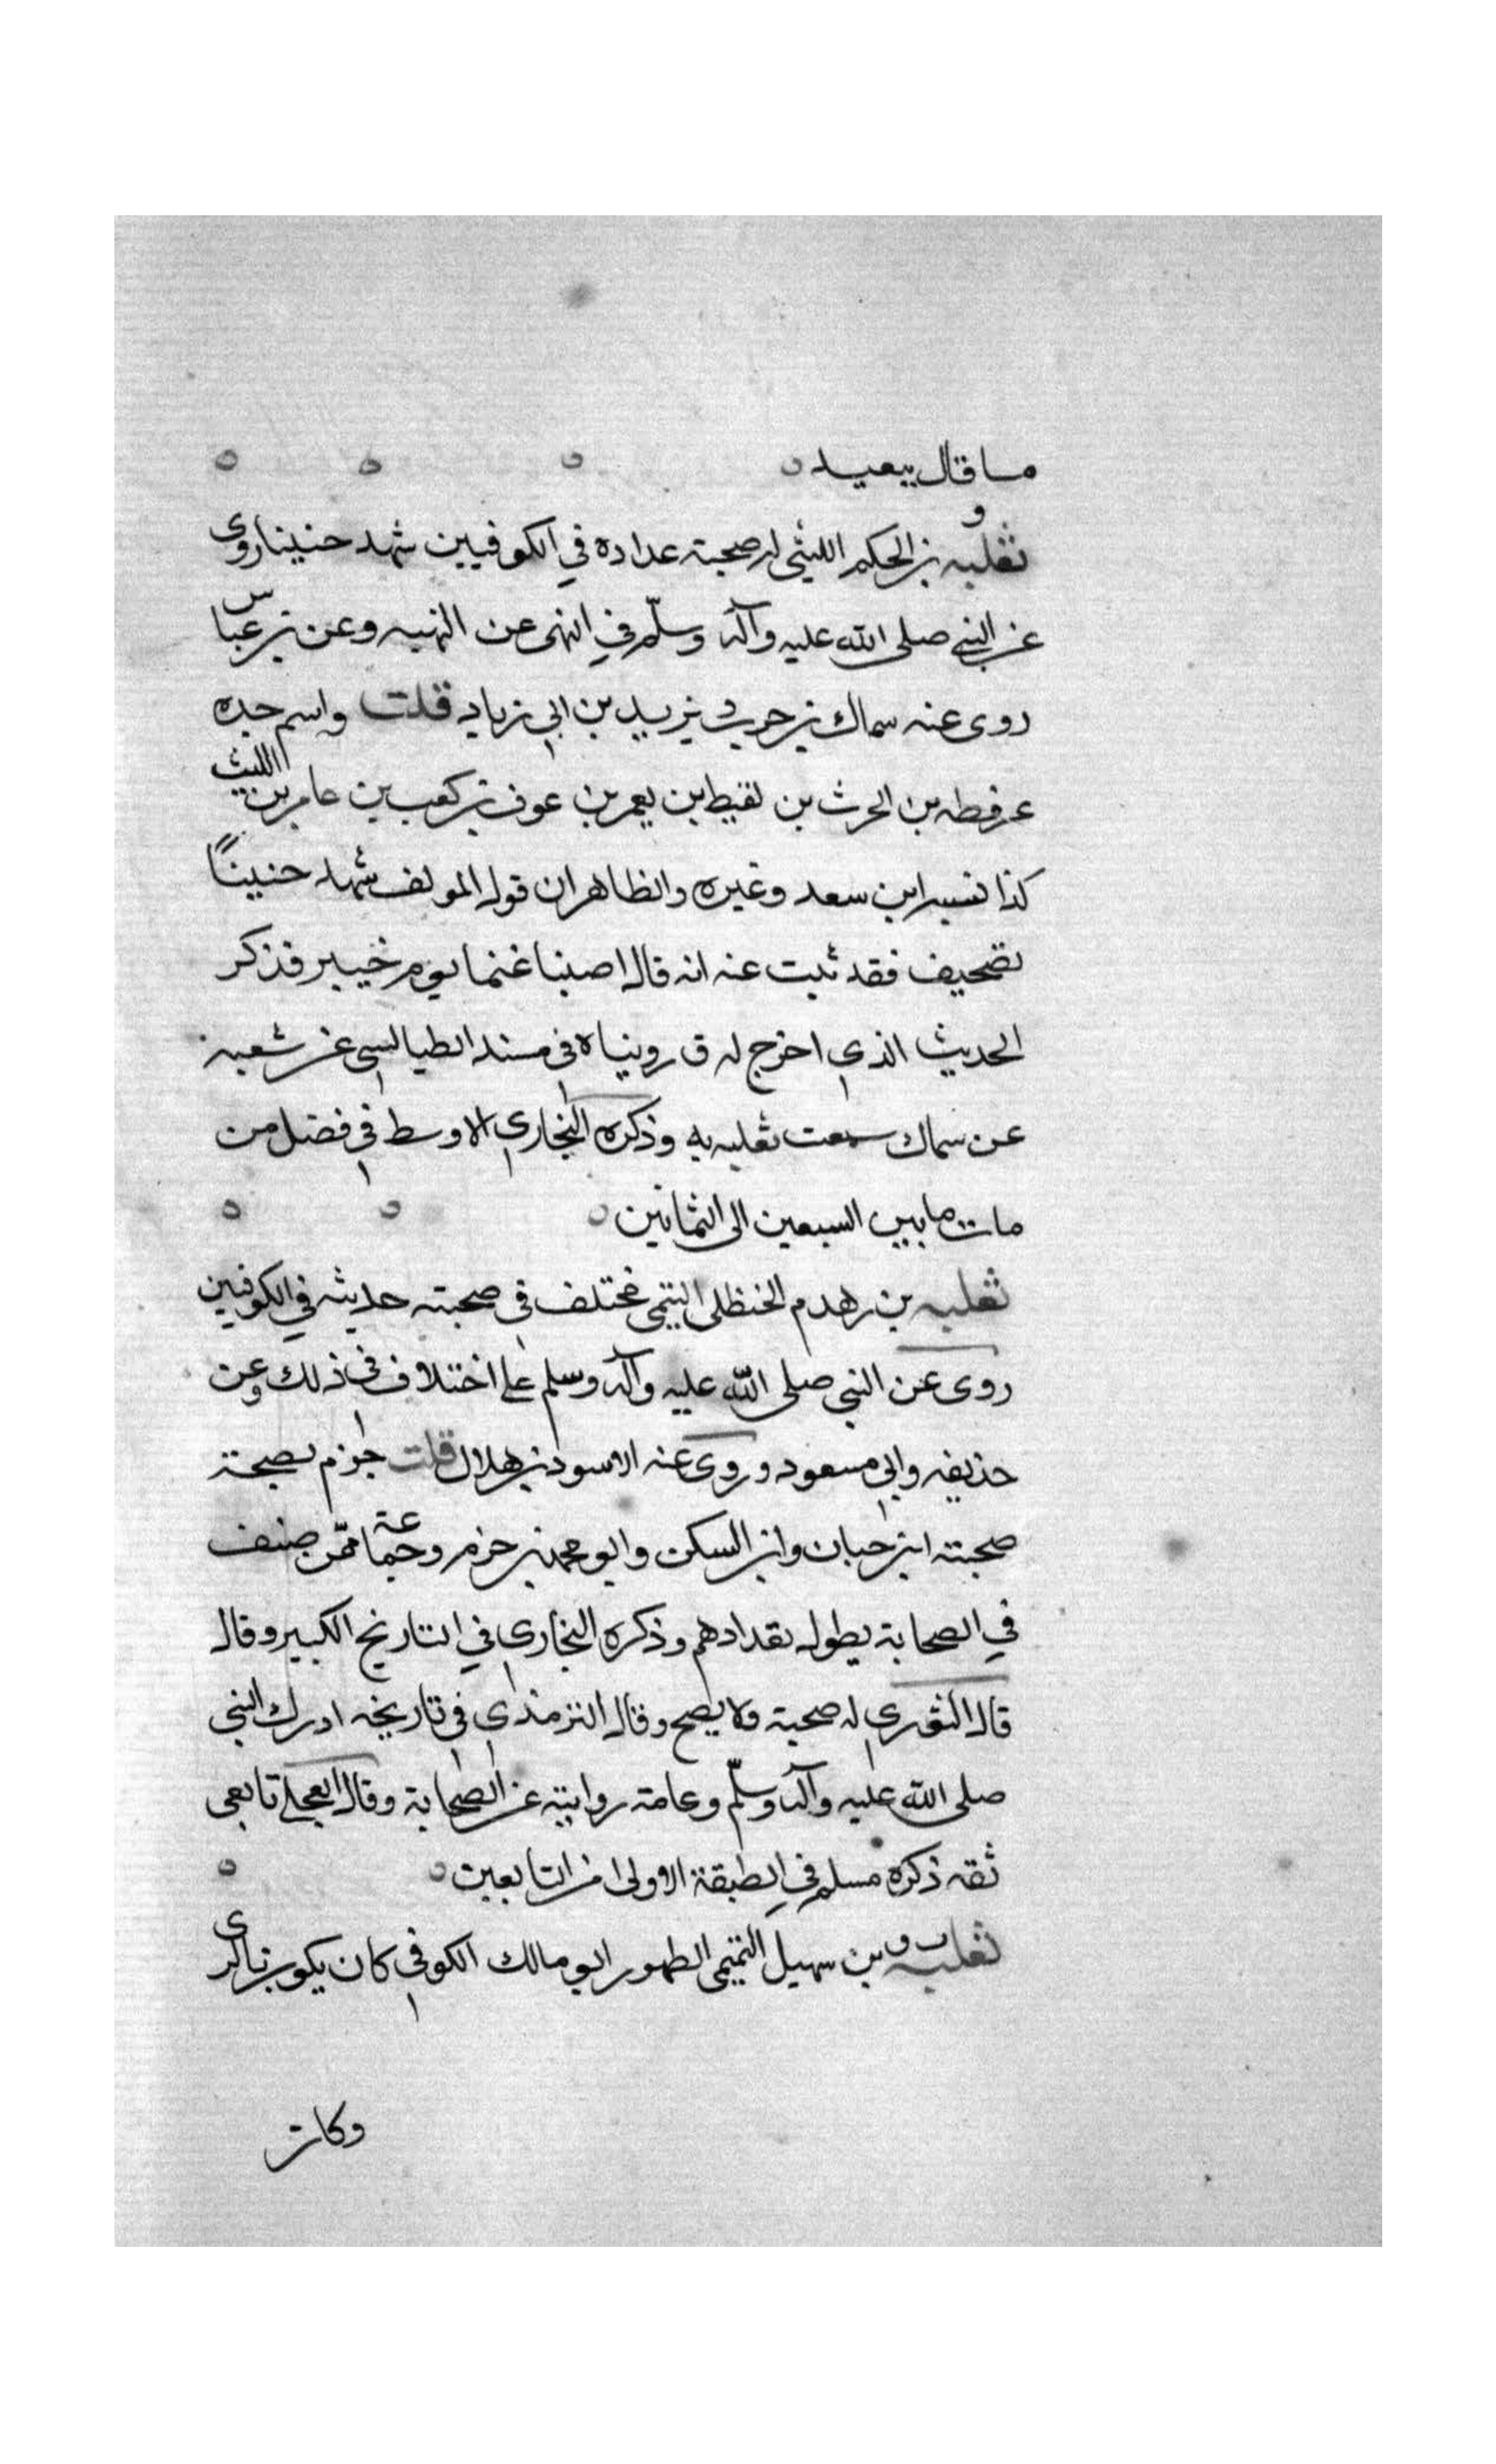 ما قال ببعيد ه ه ه ه
و
ثعلبه بن الحكم الليثي له صحبته عداده في الكوفيين شهد حنينا روى
عن النبي صلى الله عليه وآله وسلّم في النهى عن النهبه وعن بن عباس
روى عنه سماك بن حرب و يزيد بن ابي زياد قلت واسم جده
عرفطه بن الحرث بن لقيط بن يعمر بن عوف بن كعب بن عامر بن الليث
كذا نسبه ابن سعد وغيره والظاهر ان قول المولف شهد حنينًا
تصحيف فقد ثبت عنه انه قال اصبنا غنما يوم خيبر فذكر
الحديث الذي اخرج له ق رويناه في مسند الطيالسي عن شعبه
عن سماك سمعت ثعلبه به وذكره البخاري الاوسط في فصل من
مات ما بين السبعين الى الثمانين ه ه ه
ثعلبه بن زهدم الحنظلي التيمى مختلف في صحبته حديثه في الكوفيين
روى عن النبي صلى الله عليه وآله وسلم على اختلاف في ذلك وعن
حذيفه وابي مسعود و روى عنه الاسود بن هلال قلت جزم بصحبة
صحبته ابن حبان وابن السكن وابو محمد بن حزم وجماعة ممّن صنف
في الصحابة يطول تعدادهم وذكره البخارى في التاريخ الكبير وقال
قال الثوري له صحبة ولا يصح وقال الترمذي في تاريخه ادرك النبي
صلى الله عليه وآله وسلّم وعامة روايته عن الصحابة وقال العجلي تابعى
ثقه ذكره مسلم في الطبقة الاولى من التابعين ه ه
ثعلبه بن سهيل التميمى الطهور ابو مالك الكوفي كان يكون بالرى
وكان